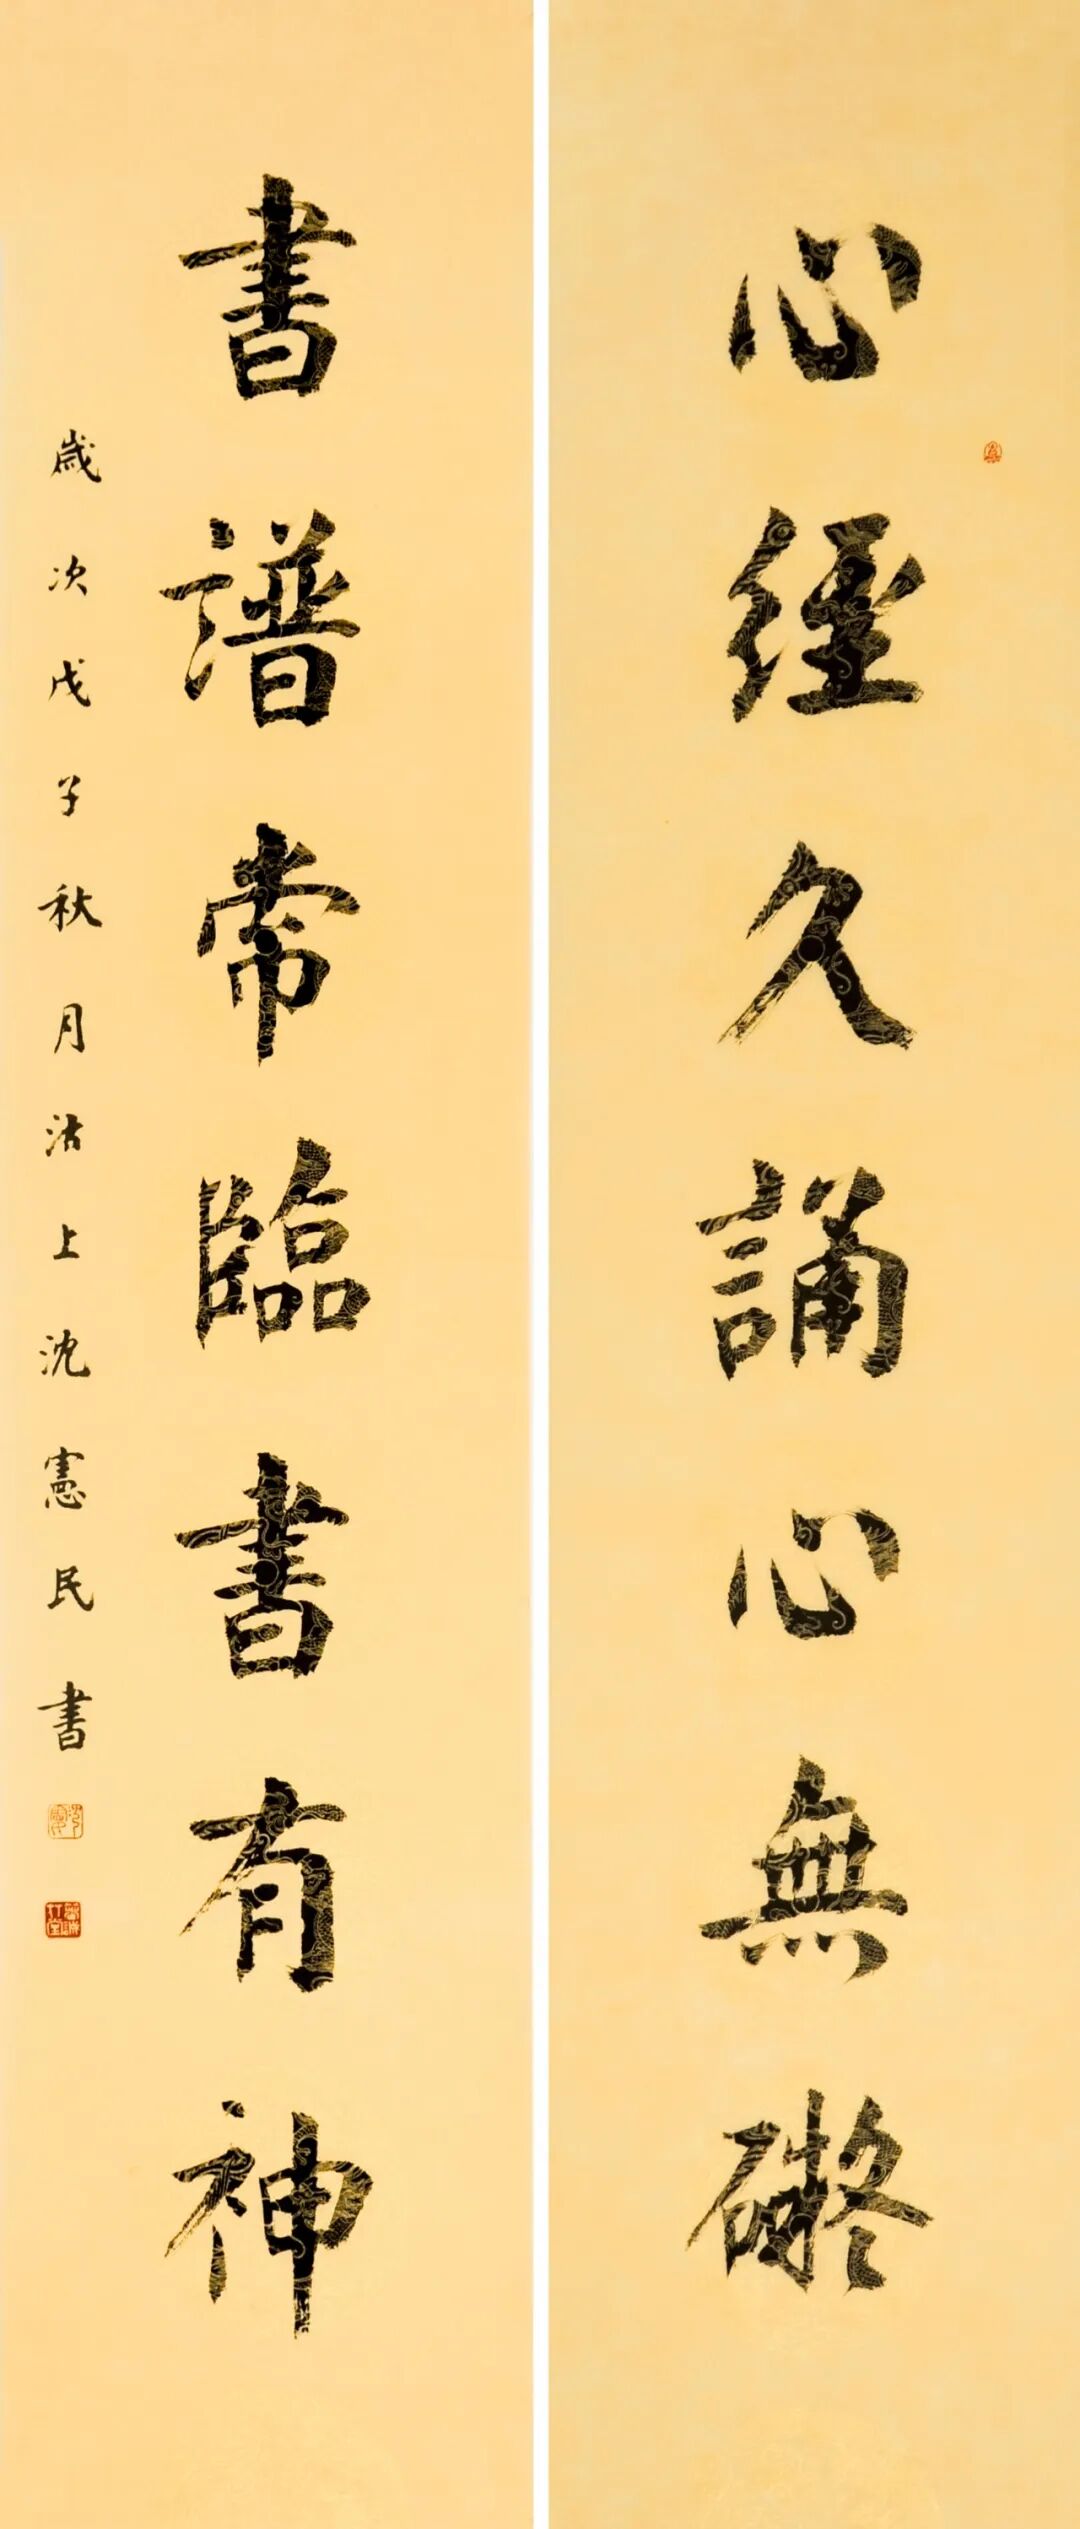 心經久誦心無礙
書譜常臨書有神
歲次戊子秋月沽上沈憲民書